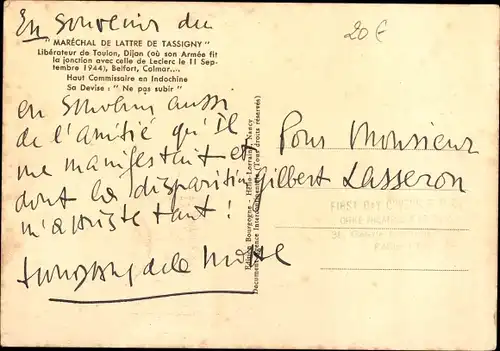 En souvenir du
20€
"MARÉCHAL DE LATTRE DE TASSIGNY"
Libérateur de Toulon, Dijon (où son Armée fit
la jonction avec celle de Leclerc le 11 Sep-
tembre 1944), Belfort, Colmar....
Haut Commissaire en Indochine
Sa Devise : " Ne pas subir "
en souvenir aussi
de l'amitié qu'Il
me manifestait et
dont la disparition
m'attriste tant !
de la
Edition Bourgogne - Nancy
Document Agence Intercontinentale (Tous droits réservés)
Pour Monsieur
Gilbert Lasseron
FIRST DAY COVERS